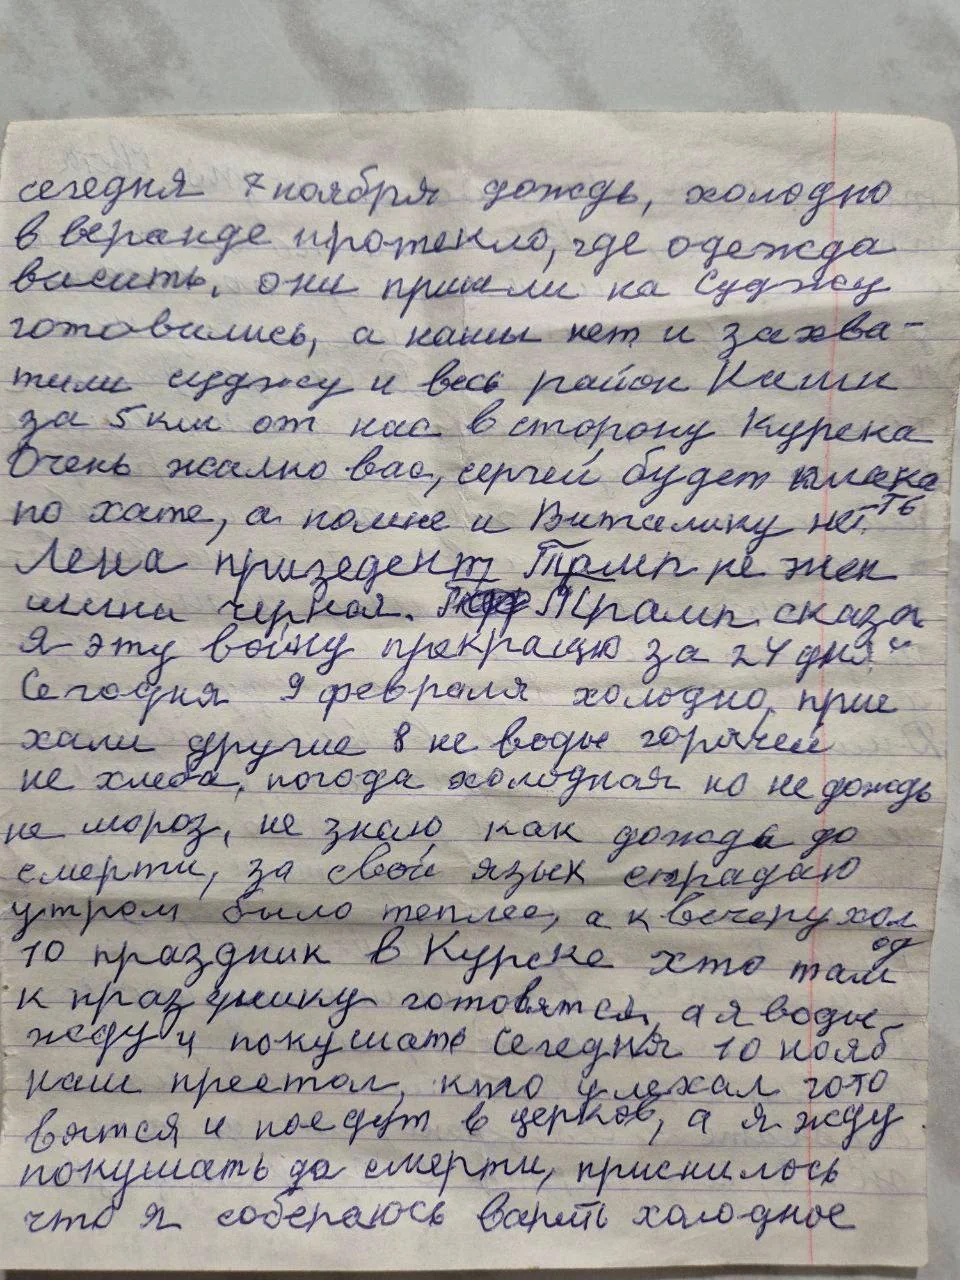 сегедня 7 ноября дождь, холодно
в веранде протекло, где одежда
висить, они пришли на Суджу
готовились, а нашы нет и захва-
тили суджу и весь район Каши
за 5 км от нас в сторону Курска
Очень жалко вас, сергей будет плака
ть
по хате, а помне и Виталику нет.
Лена призедент Трамп не жен
шина черная. Трамп сказал
я эту войну прекращю за 24 дня"
Сегодня 9 февраля холодно, прие
хали другие 8 не воды горячей
не хлеба, погода холодная но не дождь
не мороз, не знаю как дождь до
смерти, за свой язык страдаю
утром было теплее, а к вечеру хол
од
10 праздник в Курске хто там
к празднику готовятся, а я воды
жду и покушать Сегедня 10 нояб
наш престол, кто уехал гото
вятся и поедут в церков, а я жду
покушать до смерти, приснилось
что я собераюсь варить холодное